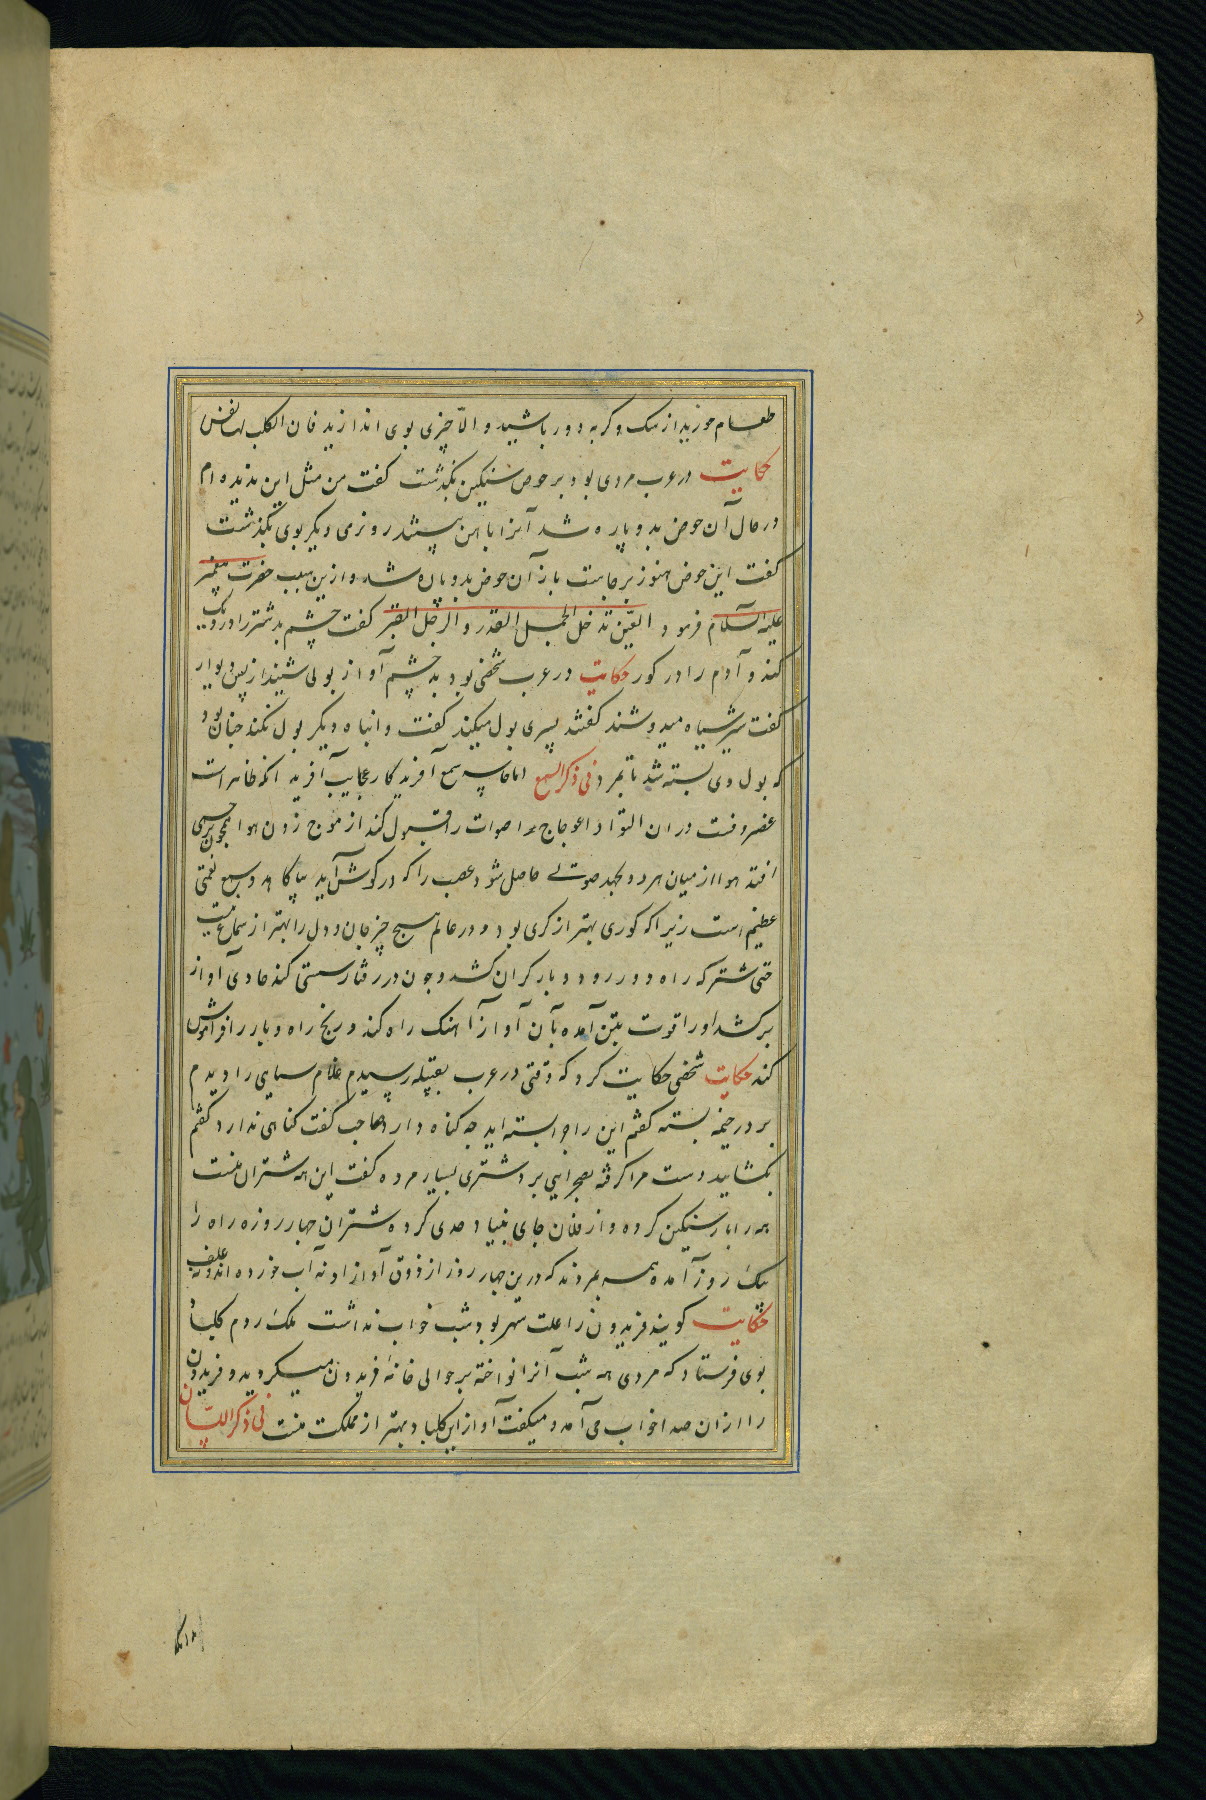 طعام خورید از سک و کربه دور باشید و الّا چیزی بوی اندازید فان الکلب لها نفس
حکایت در عرب مردی بود بر حوض سنکین بکذشت کفت من مثل این ندیده ام
در حال آن حوض بدو پاره شد آنرا باهن ببستند روزی دیکر بوی بکذشت
کفت این حوض هنوز برجاست باز آن حوض بدو پاره شد و ازین سبب حضرت پیغمبر
علیه السلام فرمود العین تدخل الجمل القدر و الرجل القبر کفت چشم بد شتر را در دیک
کند و آدم را در کور حکایت در عرب شخصی بود بد چشم آواز بولی شنید از پس دیوار
کفت شیر سیاه میدوشند کفتند پسری بول میکند کفت وانباه دیکر بول نکند چنان بود
که بول وی بسته شد تا بمرد فی ذکر السمع اما حاسه سمع آفریدکار عجایب آفرید انکه خانه است
عضروفست در ان التوا و اعوجاج تا اصوات را قبول کند از موج زدن هوا همچون جسمی
افتد هوا از میان هر دو بجهد صوتی حاصل شود عصب را که در کوش آید بیاکاهد و سمع نعمتی
عظیم است زیرا که کوری بهتر از کری بود و در عالم هیچ چیز جان و دل را بهتر از سماع نیست
حتی شتر که راه دور رود و بار کران کشد و چون در رفتار سستی کند حادی آواز
برکشد اورا قوت بتن آمده بآن آواز آهنک راه کند و رنج راه و بار را فراموش
کند حکایت شخصی حکایت کرد که وقتی در عرب بقبیله رسیدم غلام سیاهی را دیدم
بر در خیمه بسته کفتم این را چرا بسته اید چه کناه دارد صاحب کفت کناهی ندارد کفتم
بکشایید دست مرا کرفته بصحرایی برد شتری بسیار مرده کفت این همه شتران منست
همه را بار سنکین کرده و از فلان جای بنیاد حدی کرده شتران چهار روزه راه را
بیک روز آمده همه بمردند که درین چهار روز از ذوق آواز او نه آب خورده اند و نه علف
حکایت کویند فریدون را علت سهر بود شب خواب نداشت ملک روم کلباد
بوی فرستاد که مردی همه شب آنرا نواخته بر حوالی خانه فریدون میکردید و فریدون
را از ان صدا خواب می آمد و میکفت آواز این کلباد بهتر از مملکت منست فی ذکر اللسان